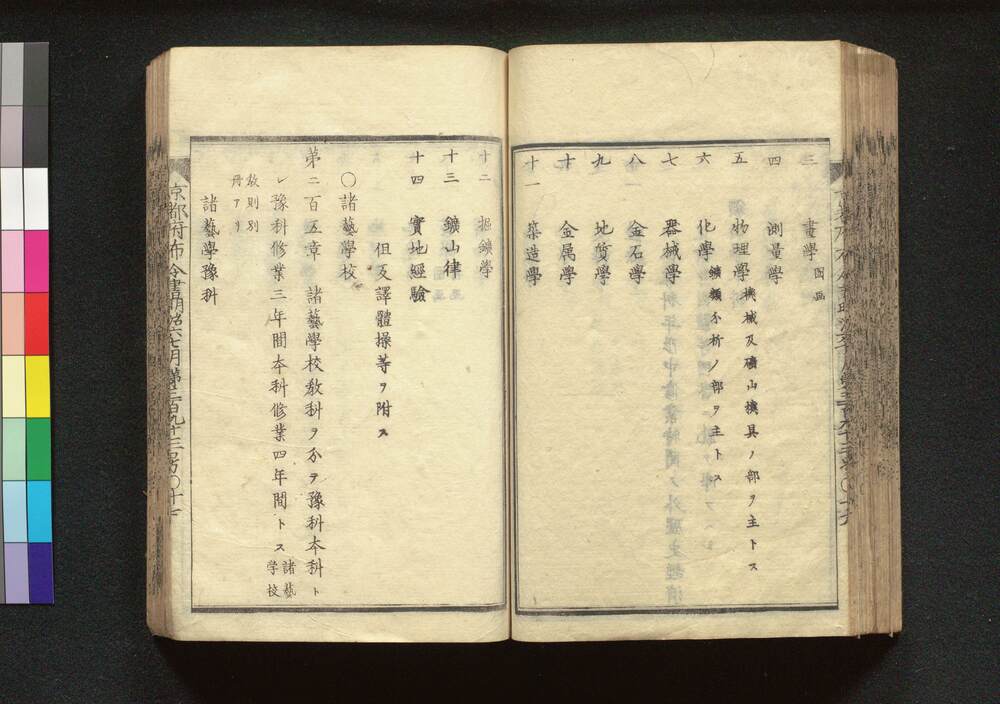 三 畫學 圖画
四 測量學
五 物理學 機械及礦山機具ノ部ヲ主トス
六 化學 鑛類分析ノ部ヲ主トス
七 器械學
八 金石學
九 地質學
十 金属學
十一 築造學
十二 掘鑛學
十三 鑛山律
十四 實地經驗
但反譯體操等ヲ附ス
〇諸藝學校
第二百五章 諸藝學校敎科ヲ分テ豫科本科ト
シ豫科修業三年間本科修業四年間トス 諸藝學校
敎則別冊アリ
諸藝學豫科
京都府布令書明治六七月第三百九十三号〇十七